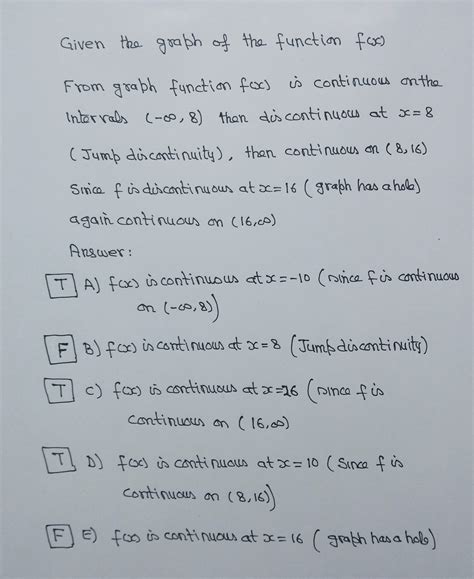 Given the graph of the function f(x)
From graph function f(x) is continuous on the
Intervals (-∞, 8) then discontinuous at x=8
(Jump discontinuity), then continuous on (8,16)
Since f is discontinuous at x=16 (graph has a hole)
again continuous on (16,∞)
Answer:
T A) f(x) is continuous at x=-10 (since f is continuous
on (-∞,8))
F B) f(x) is continuous at x=8 (Jump discontinuity)
T C) f(x) is continuous at x=26 (since f is
continuous on (16,∞)
T D) f(x) is continuous at x=10 (Since f is
continuous on (8,16))
F E) f(x) is continuous at x=16 (graph has a hole)